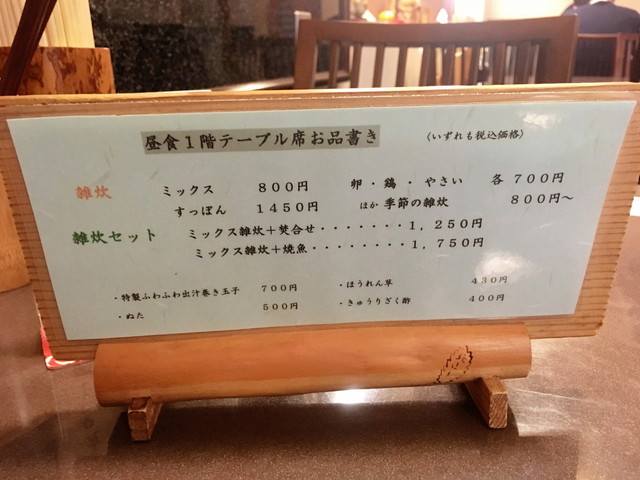 昼食1階テーブル席お品書き (いずれも税込価格)
雑炊 ミックス 800円 卵・鶏・やさい 各700円
すっぽん 1450円 ほか季節の雑炊 800円~
雑炊セット ミックス雑炊+焚合せ・・・・・・・1,250円
ミックス雑炊+焼魚・・・・・・・・1,750円
・特製ふわふわ出汁巻き玉子 700円 ・ほうれん草 430円
・ぬた 500円 ・きゅうりざく酢 400円